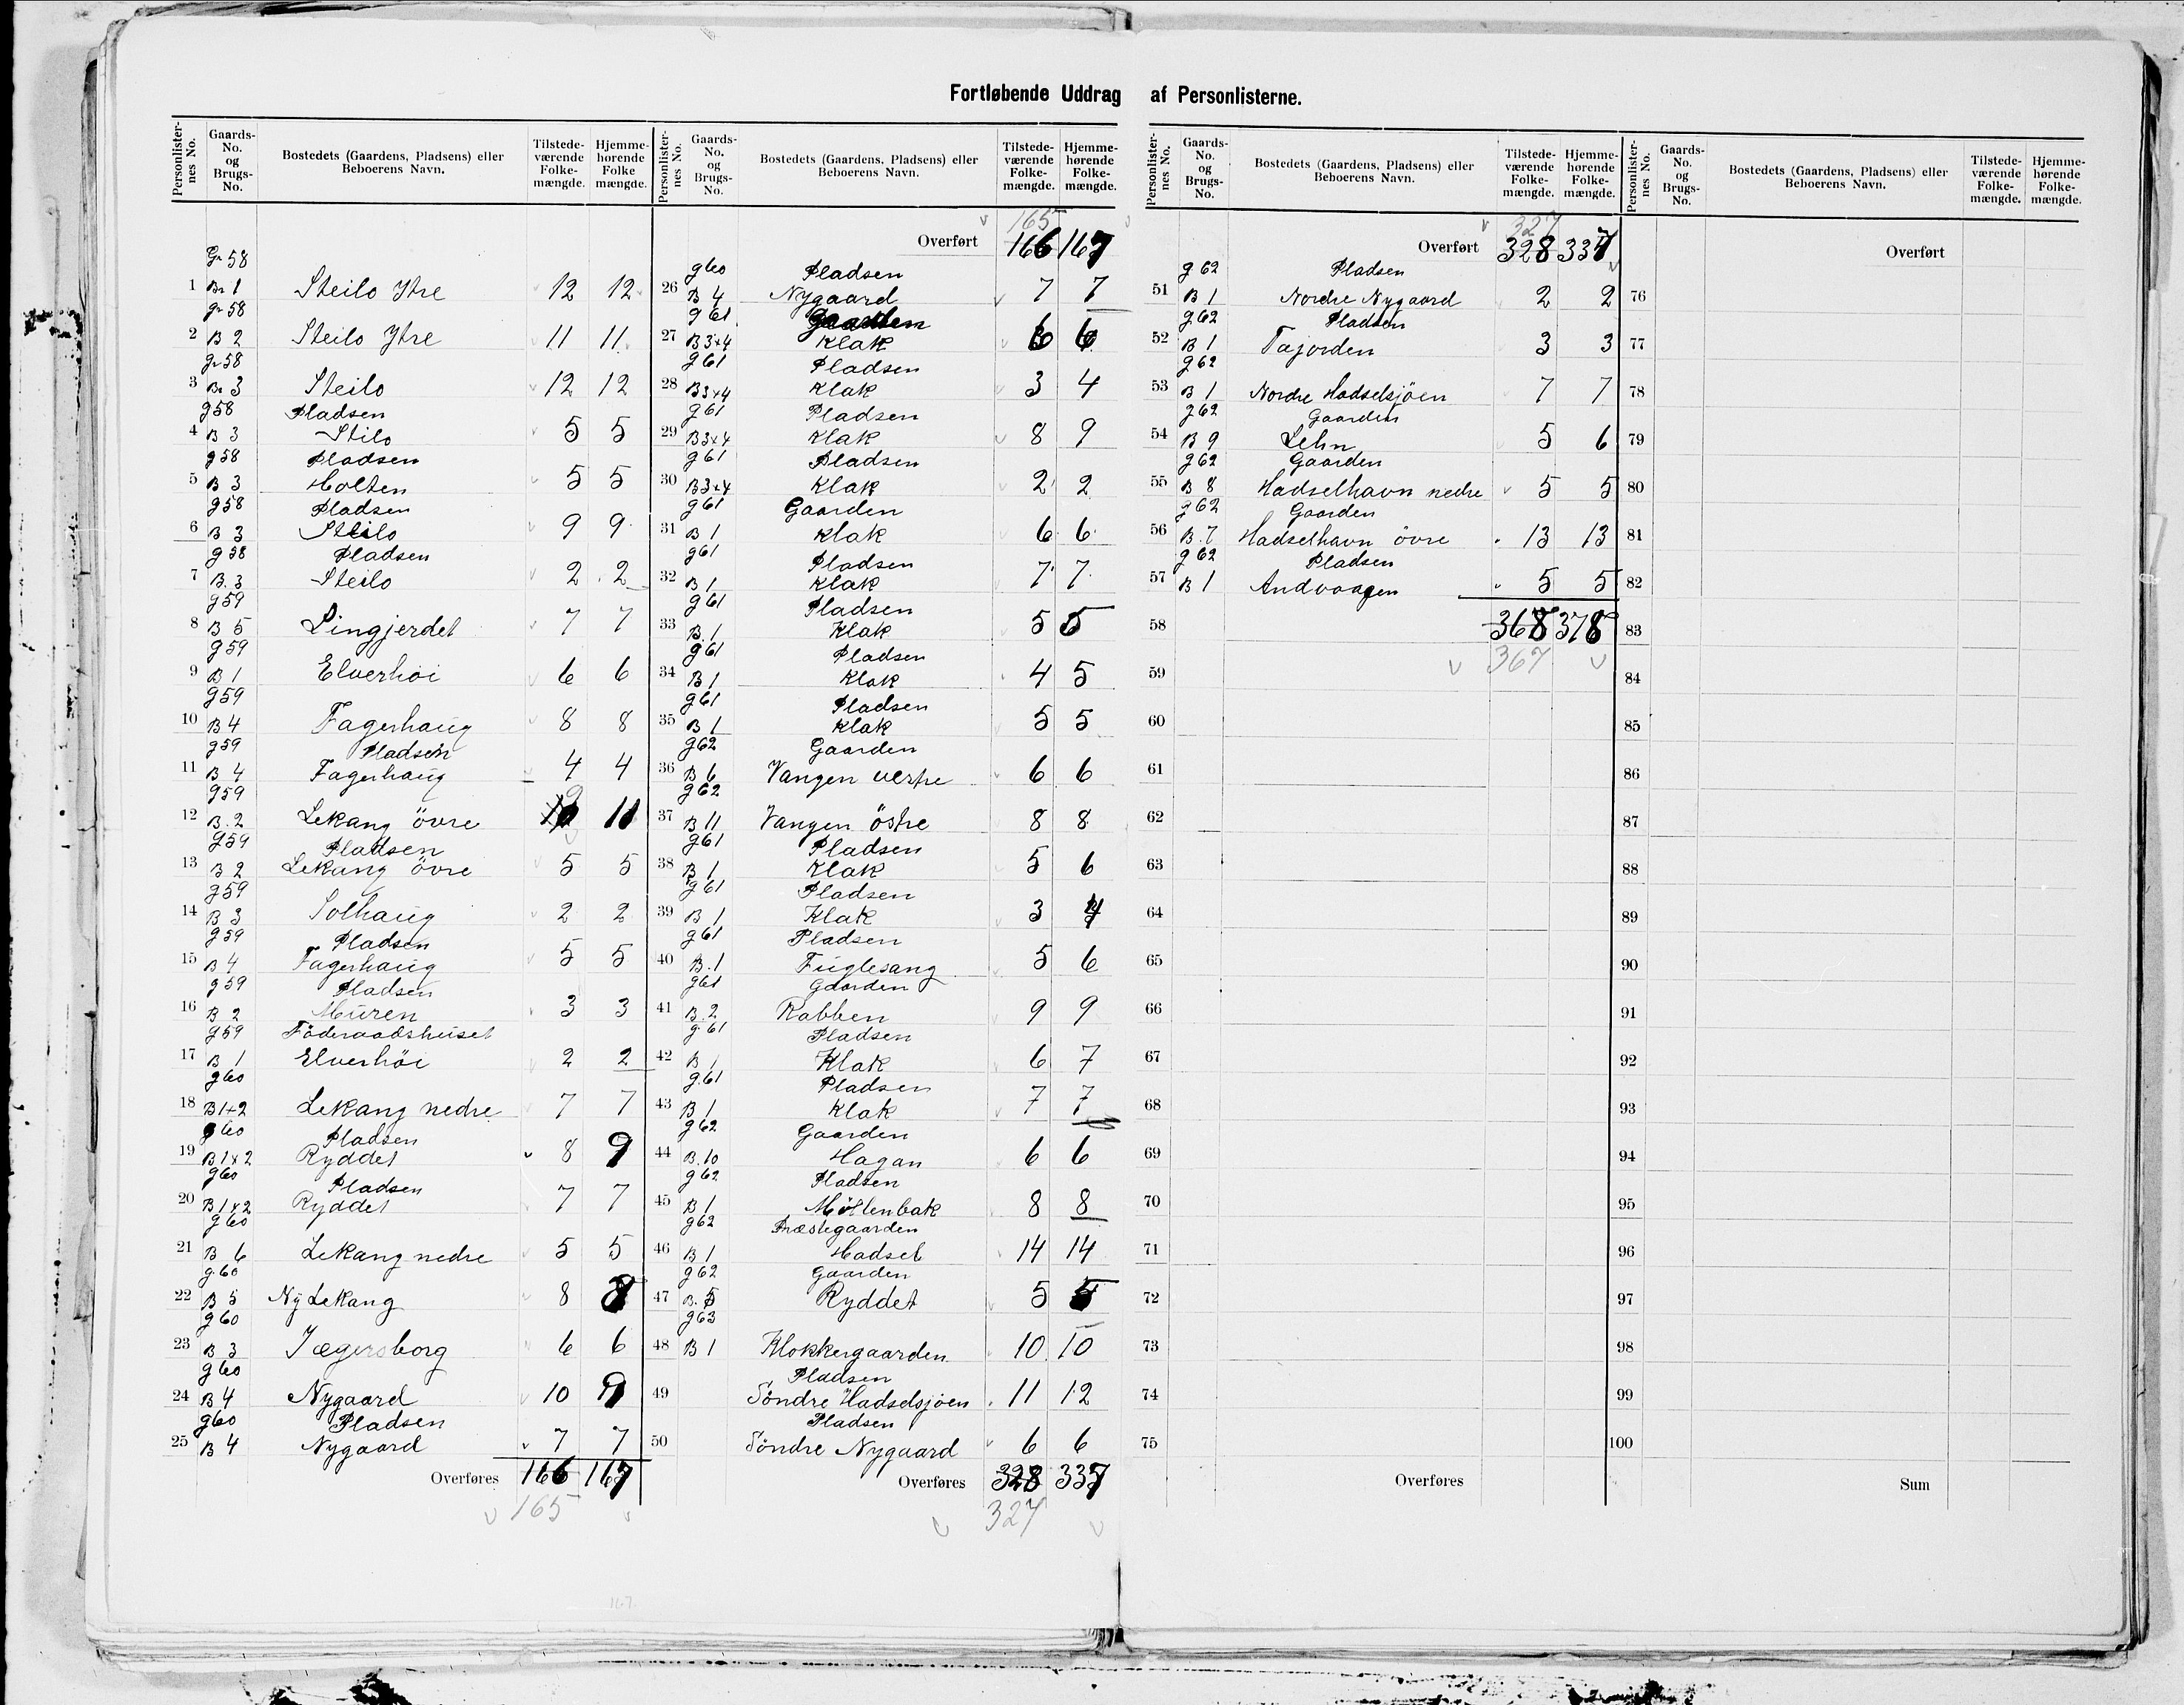 Fortløbende Uddrag af Personlisterne.
Personlister-nes No. Gaards-No. og Brugs-No. Bostedets (Gaardens, Pladsens) eller Beboerens Navn. Tilstede-værende Folke-mængde. Hjemme-hørende Folke mængde.
Gr 58
1 Br 1 Steilo Ytre 12 12
gr 58
2 B 2 Steilo Ytre 11 11
gr 58
3 Br 3 Steilo 12 12
g 58 Pladsen
4 B 3 Stilo 5 5
g 58 Pladsen
5 B 3 Holten 5 5
g 58 Pladsen
6 B 3 Steilo 9 9
g 58 Pladsen
7 B. 3 Steilo 2 2
g 59
8 B 5 Lingjerdet 7 7
g 59
9 B 1 Elverhöi 6 6
g 59
10 B 4 Fagerhaug 8 8
g 59 Pladsen
11 B 4 Fagerhaug 4 4
g 59 9
12 B. 2 Lekang övre 10 10
g 59 Pladsen
13 B 2 Lekang övre 5 5
g 59
14 B 3 Solhaug 2 2
g 59 Pladsen
15 B 4 Fagerhaug 5 5
g 59 Pladsen
16 B 2 Muren 3 3
g 59 Föderaadshuset
17 B 1 Elverhöi 2 2
g 60
18 B 1+2 Lekang nedre 7 7
g 60 Pladsen
19 B 1x2 Ryddet 8 9
g 60 Pladsen
20 B 1x2 Ryddet 7 7
g 60
21 B 6 Lekang nedre 5 5
g 60
22 B 5 Ny Lekang 8 8
g 60
23 B 3 Jægersborg 6 6
g 60
24 B 4 Nygaard 10 9
g 60 Pladsen
25 B 4 Nygaard 7 7
Overføres 166 167
165
Personlister-nes No. Gaards-No. og Brugs-No. Bostedets (Gaardens, Pladsens) eller Beboerens Navn. Tilstede-værende Folke-mængde. Hjemme-hørende Folke-mængde.
165
Overført 166 167
g 60 Pladsen
26 B 4 Nygaard 7 7
g 61 Gaarden
27 B 3x4 Klak 6 6
g 61 Pladsen
28 B 3x4 Klak 3 4
g 61 Pladsen
29 B 3x4 Klak 8 9
g 61 Pladsen
30 B 3x4 Klak 2 2
g 61 Gaarden
31 B 1 Klak 6 6
g 61 Pladsen
32 B 1 Klak 7 7
g 61 Pladsen
33 B. 1 Klak 5 5
g 61 Pladsen
34 B 1 Klak 4 5
g 61 Pladsen
35 B 1 Klak 5 5
g 62 Gaarden
36 B 6 Vangen vestre 6 6
g 62
37 B 11 Vangen östre 8 8
g 61 Pladsen
38 B 1 Klak 5 6
g 61 Pladsen
39 B 1 Klak 3 4
g 61 Pladsen
40 B. 1 Fuglesang 5 6
g 61 Gaarden
41 B. 2 Rabben 9 9
g 61 Pladsen
42 B 1 Klak 6 7
g. 61 Pladsen
43 B 1 Klak 7 7
g 62 Gaarden
44 B. 10 Hagan 6 6
g 62 Pladsen
45 B 1 Möllenbak 8 8
g 62 Præstegaarden
46 B 1 Hadsel 14 14
g 62 Gaarden
47 B. 5 Ryddet 5 5
g 63
48 B 1 Klokkergaarden 10 10
Pladsen
49 Söndre Hadselsjöen 11 12
Pladsen
50 Söndre Nygaard 6 6
Overføres 328 337
327
Personlister-nes No. Gaards-No. og Brugs-No. Bostedets (Gaardens, Pladsens) eller Beboerens Navn. Tilstede-værende Folke-mængde. Hjemme-hørende Folke-mængde.
327
Overført 328 337
g 62 Pladsen
51 B 1 Nordre Nygaard 2 2
g. 62 Pladsen
52 B 1 Tajorden 3 3
g 62
53 B 1 Nordre Hadselsjöen 7 7
g 62 Gaarden
54 B 9 Lehn 5 6
g 62 Gaarden
55 B 8 Hadselhavn nedre 5 5
g 62 Gaarden
56 B. 7 Hadselhavn övre 13 13
g 62 Pladsen
57 B 1 Andvaagen 5 5
58 368 378
367
59
60
61
62
63
64
65
66
67
68
69
70
71
72
73
74
75
Overføres
Personlister-nes No. Gaards-No. og Brugs-No. Bostedets (Gaardens, Pladsens) eller Beboerens Navn. Tilstede-værende Folke-mængde. Hjemme-hørende Folke-mængde.
Overført
76
77
78
79
80
81
82
83
84
85
86
87
88
89
90
91
92
93
94
95
96
97
98
99
100
Sum
167